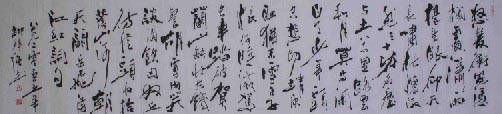 怒髮衝冠憑
欄處瀟瀟雨
歇抬望眼仰天
長嘯壯懷激
烈三十功名塵
與土八千里路雲
和月莫等閒
白了少年頭
空悲切靖康
恥猶未雪臣子
恨何時滅駕
長車踏破賀
蘭山缺壯志飢
餐胡虜肉笑
談渴飲匈奴血
待從頭收拾
舊山河朝
天闕岳飛滿
江紅詞句